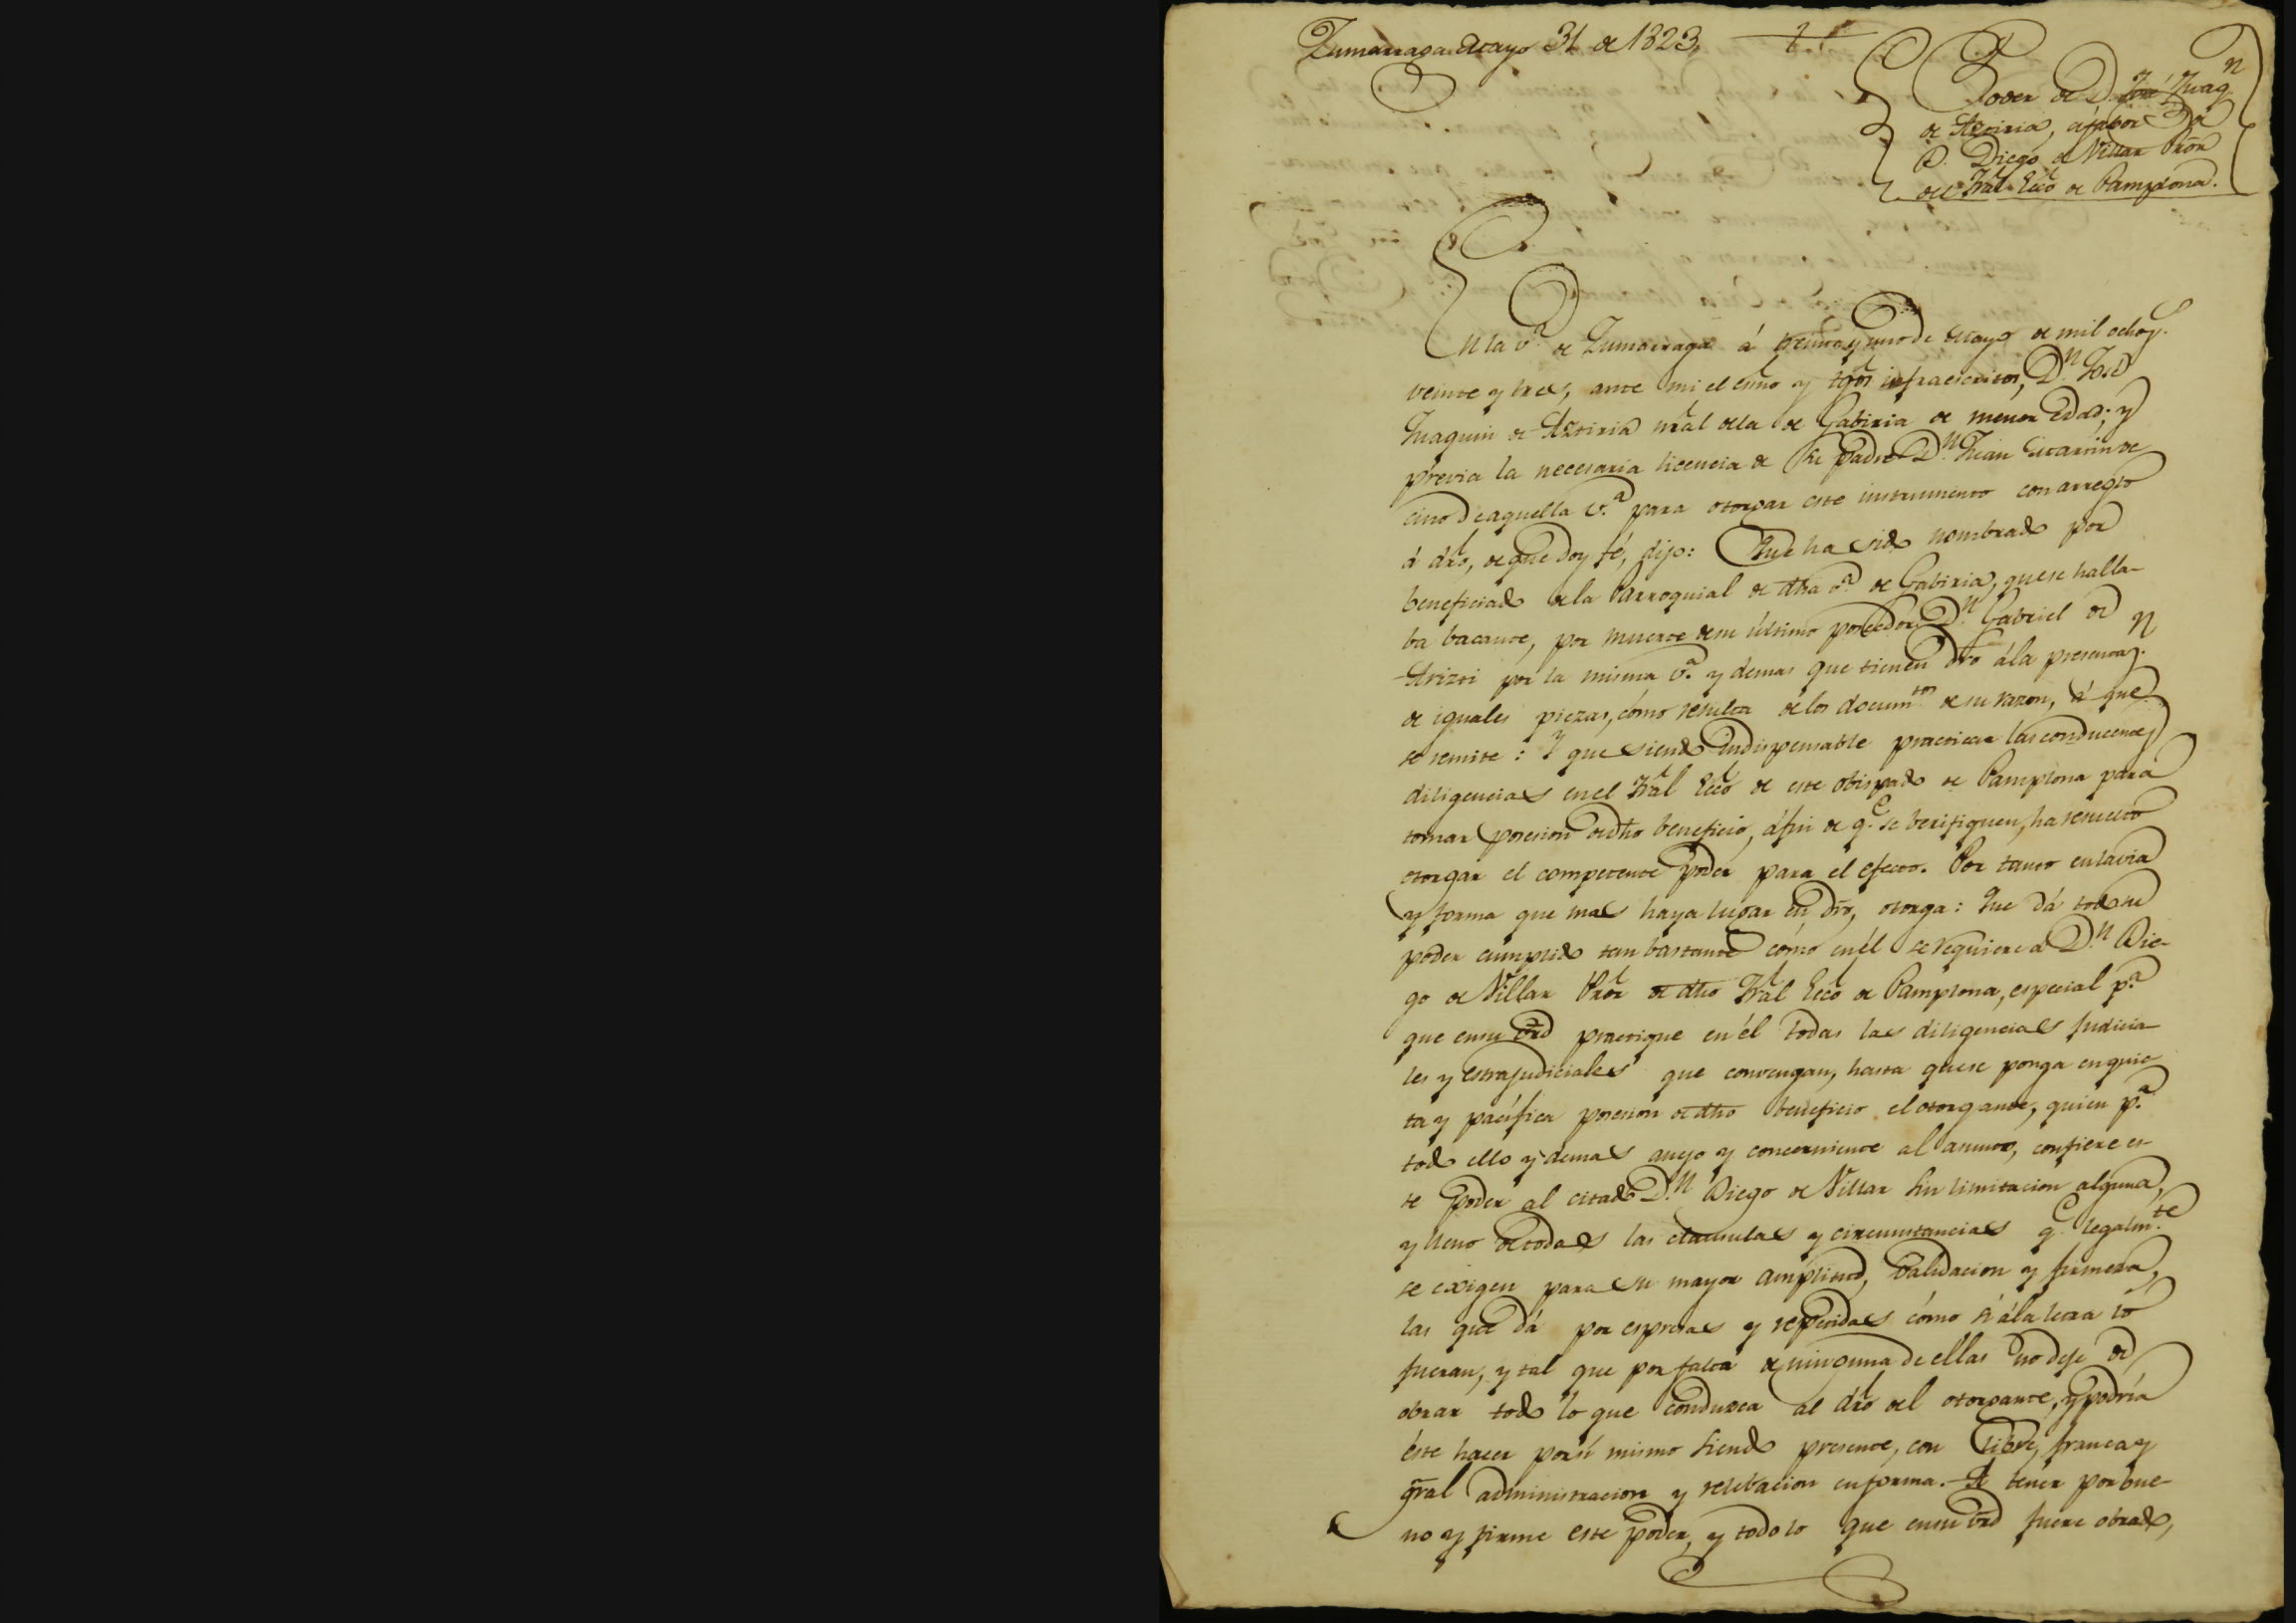 Zumarraga Mayo 31 de 1823.
Poder de D.n José Juaq.n
de Aztiria, á fabor de
D. Diego de Villar Prór
del Trãl Ecco de Pamplona.
En la v.a de Zumarraga á treinta y uno de Mayo de mil ochoz.s
veinte y tres, ante mi el esno y tgos infraescritos, D.n José
Juaquin de Aztiria nral de la de Gabiria de menor edad; y
previa la necesaria licencia de su padre D.n Juan
cino de aquella v.a para otorgar este instrumento con arreglo
á dro, de que doy fé, dijo: Que ha sido nombrado por
beneficiado de la Parroquial de dha v.a de Gabiria, que se halla-
ba bacante, por muerte de su último poseedor D.n Gabriel de
Arizti por la misma v.a y demas que tienen dro á la presentaz.n
de iguales piezas, cómo resulta de los docum.tos de su razon, á que
se remite: Y que siendo indispensable practicar las conducentes
diligencias en el Trãl Ecco de este obispado de Pamplona para
tomar posesion de dho beneficio, á fin de q.e se berifiquen, ha resuelto
otorgar el competente poder para el efecto. Por tanto en la via
y forma que mas haya lugar en dro, otorga: Que dá todo su
poder cumplido tan bastante cómo en él se requiere a D.n Die-
go de Villar Prór de dho Trãl Ecco de Pamplona, especial p.a
que en su vrd practique en él todas las diligencias judicia-
les y estrajudiciales que convengan, hasta que se ponga en quie-
ta y pacífica posesion de dho beneficio el otorgante, quien p.a
todo ello y demas anejo y concerniente al asunto, confiere es-
te poder al citado D.n Diego de Villar sin limitacion alguna,
y lleno de todas las clausulas y circunstancias q.e legalm.te
se exigen para su mayor amplitud, validacion y firmeza,
las que dá por espresas y repetidas cómo si á la letra lo
fueran, y tal que por falta de ninguna de ellas no deje de
obrar todo lo que conduzca al dro del otorgante, y podría
éste hacer por sí mismo siendo presente, con libre, franca y
gral administracion y relebacion en forma. A tener por bue-
no y firme este poder, y todo lo que en su vrd fuere obrado,